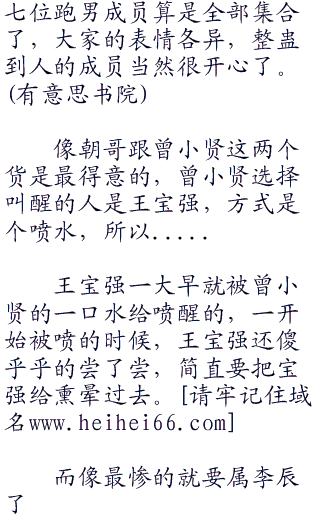 七位跑男成员算是全部集合
了，大家的表情各异，整蛊
到人的成员当然很开心了。
(有意思书院)
像朝哥跟曾小贤这两个
货是最得意的，曾小贤选择
叫醒的人是王宝强，方式是
个喷水，所以.....
王宝强一大早就被曾小
贤的一口水给喷醒的，一开
始被喷的时候，王宝强还傻
乎乎的尝了尝，简直要把宝
强给熏晕过去。[请牢记住域
名www.heihei66.com]
而像最惨的就要属李辰
了